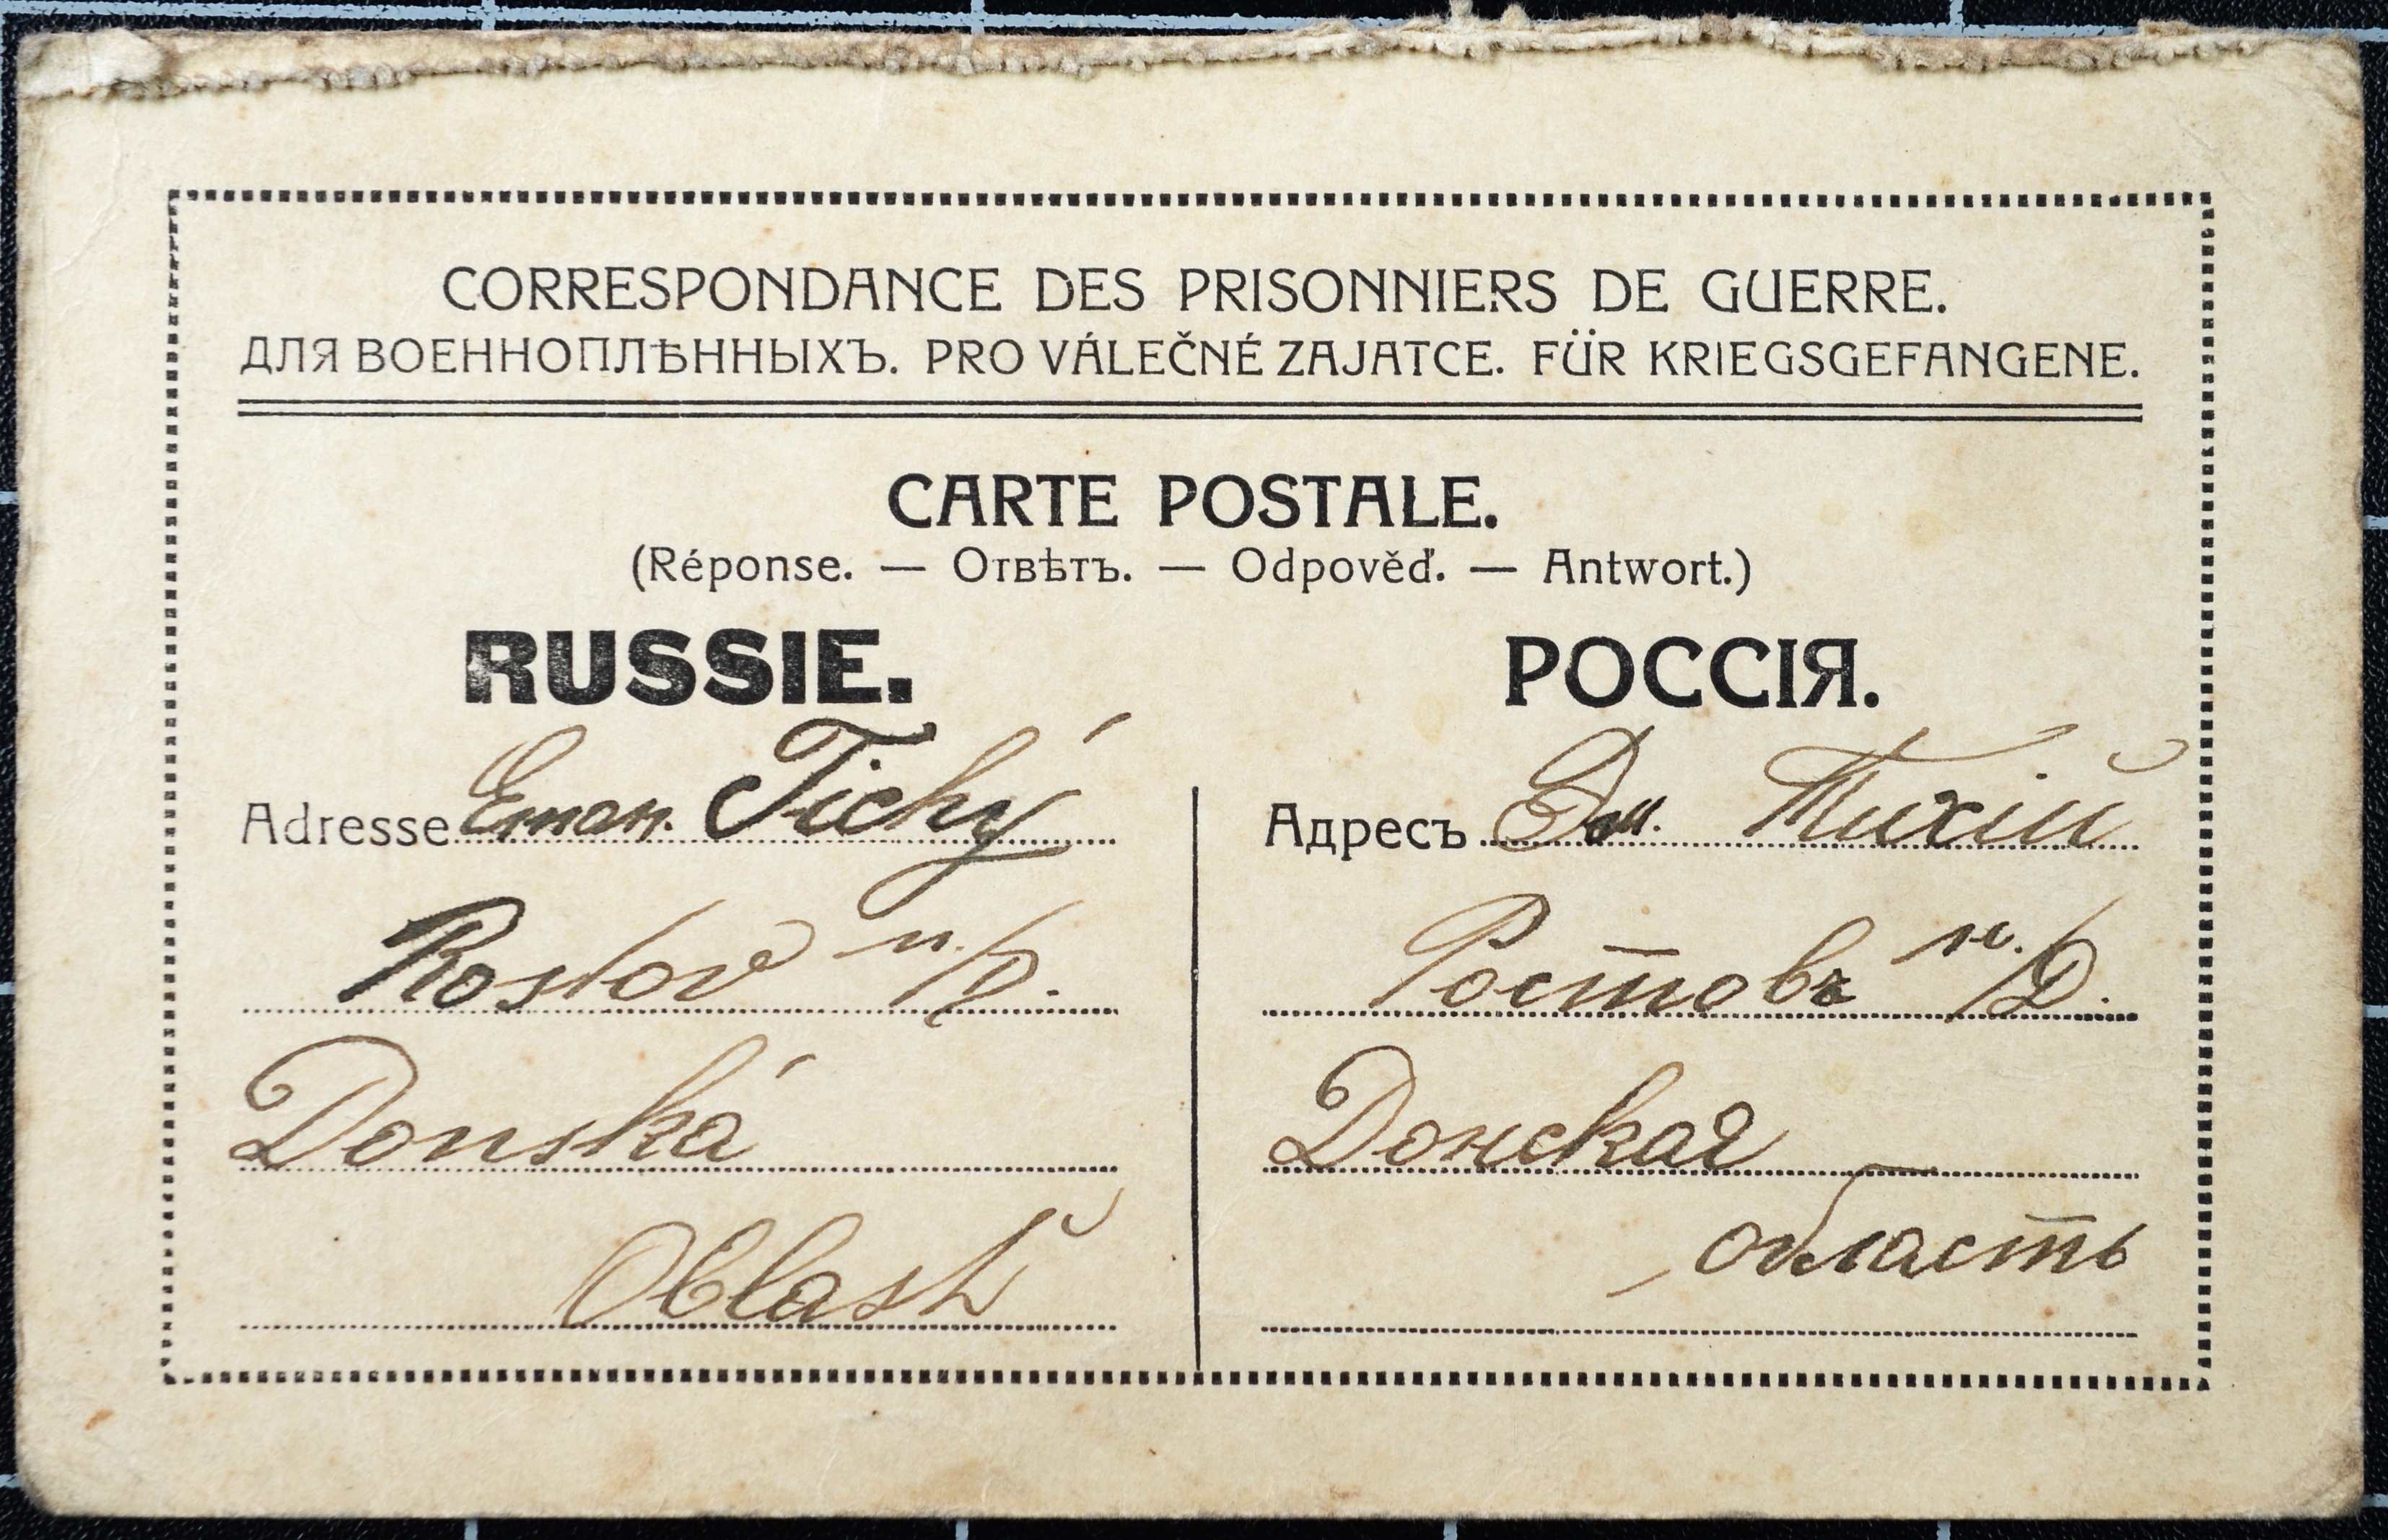 CORRESPONDANCE DES PRISONNIERS DE GUERRE.
ДЛЯ ВОЕННОПЛѢННЫХЪ. PRO VÁLEČNÉ ZAJATCE. FÜR KRIEGSGEFANGENE.
CARTE POSTALE.
(Réponse. — Отвѣтъ. — Odpověď. — Antwort.)
RUSSIE.
Adresse Eman. Tichý
Rostov n./D.
Donská
Oblasť
РОССІЯ.
Адресъ Эм. Тихій
Ростовъ н./Д.
Донская
область